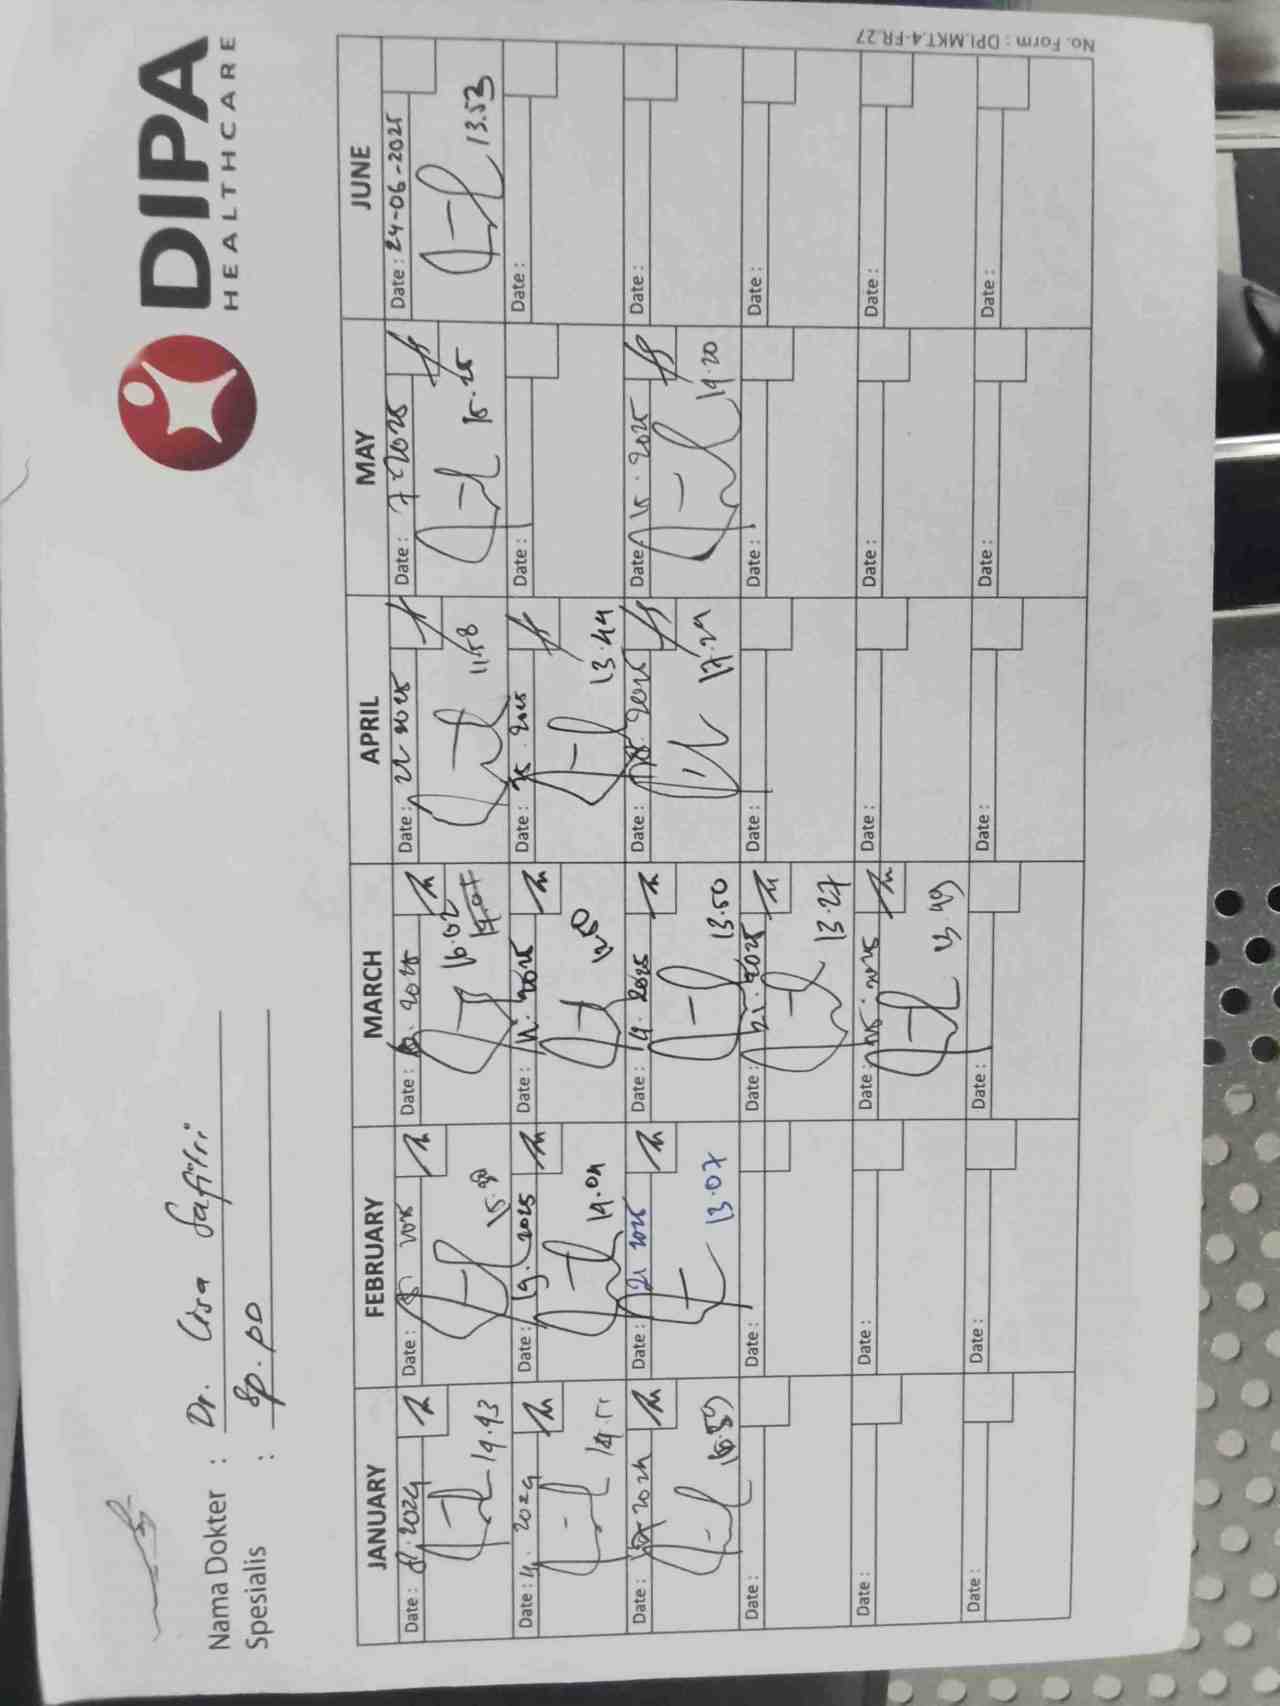 DIPA
HEALTHCARE
Nama Dokter : Dr. Lisa Safitri
Spesialis : Sp. PD
JANUARY FEBRUARY MARCH APRIL MAY JUNE
Date : 2024 Date : Date : 2025 Date : 2025 Date : 7-2025 Date : 24-06-2025
14.43 16.02 11.58 15.25 13.53
Date : 2024 Date : 19. 2025 Date : 2025 Date : 2025 Date : Date :
14.04 13.44
Date : 2024 Date : 21 2025 Date : 19. 2025 Date : 2025 Date : 15. 2025 Date :
13.07 13.50 17.29 14.20
Date : Date : Date : 21. 2025 Date : Date : Date :
13.27
Date : Date : Date : 2025 Date : Date : Date :
13.49
Date : Date : Date : Date : Date : Date :
No. Form : DPI.MKT.4-FR.27